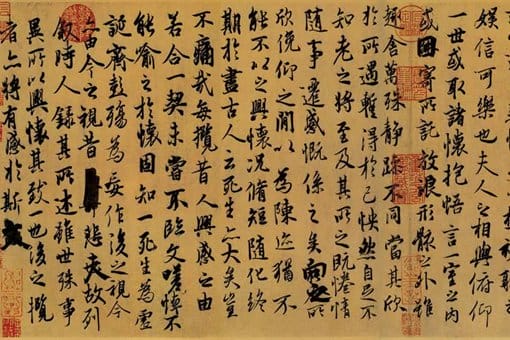 娛信可樂也夫人之相與俯仰
一世或取諸懷抱悟言一室之内
或因寄所託放浪形骸之外雖
趣舍萬殊靜躁不同當其欣
於所遇暫得於己怏然自足不
知老之將至及其所之既惓情
隨事遷感慨係之矣向之所
欣俛仰之閒以為陳迹猶不
能不以之興懷況脩短隨化終
期於盡古人云死生亦大矣豈
不痛哉每攬昔人興感之由
若合一契未嘗不臨文嗟悼不
能喻之於懷固知一死生為虛
誕齊彭殤為妄作後之視今
亦由今之視昔悲夫故列
敘時人錄其所述雖世殊事
異所以興懷其致一也後之攬
者亦將有感於斯文